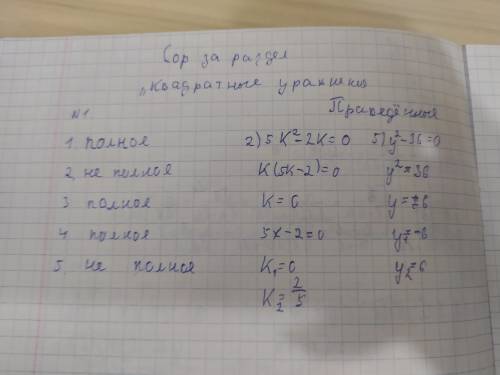 Сор за раздел
"Квадратные уравнения
№1
Приведённые
1 полное
2 не полное
3 полное
4 полное
5 не полное
2) 5K²-2K=0
K(5K-2)=0
K=0
5x-2=0
K₁=0
K₂=2/5
5) y²-36=0
y²=36
y=±6
y₁=-6
y₂=6